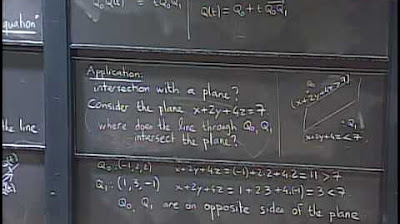 quation"
Q(t) = Q₀ + t Q₀Q₁
Application:
intersection with a plane?
Consider the plane x+2y+4z=7
where does the line through Q₀, Q₁
intersect the plane?
Q₀
(x+2y+4z>7)
Q₁
x+2y+4z<7
the line
Q₀: (-1,2,2) x+2y+4z = (-1)+2.2+4.2 = 11 > 7
Q₁: (1,3,-1) x+2y+4z = 1+2.3+4.(-1) = 3 < 7
Q₀, Q₁ are on opposite sides of the plane